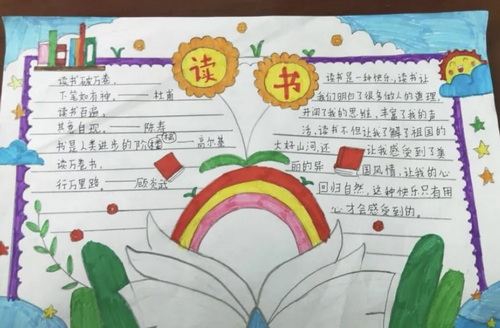 读书
读书破万卷,
下笔如有神,——杜甫
读书百遍,
其意自现,——陈寿
书是人类进步的阶梯——高尔基
读万卷书,
行万里路,——顾炎武
读书是一种快乐,读书让
我们明白了很多做人的道理,
开阔了我的思维,丰富了我的生
活,读书不但让我了解了祖国的
大好山河,还让我感受到了美
丽的异国风情,让我的心
回归自然,这种快乐只有用
心才会感受到的。